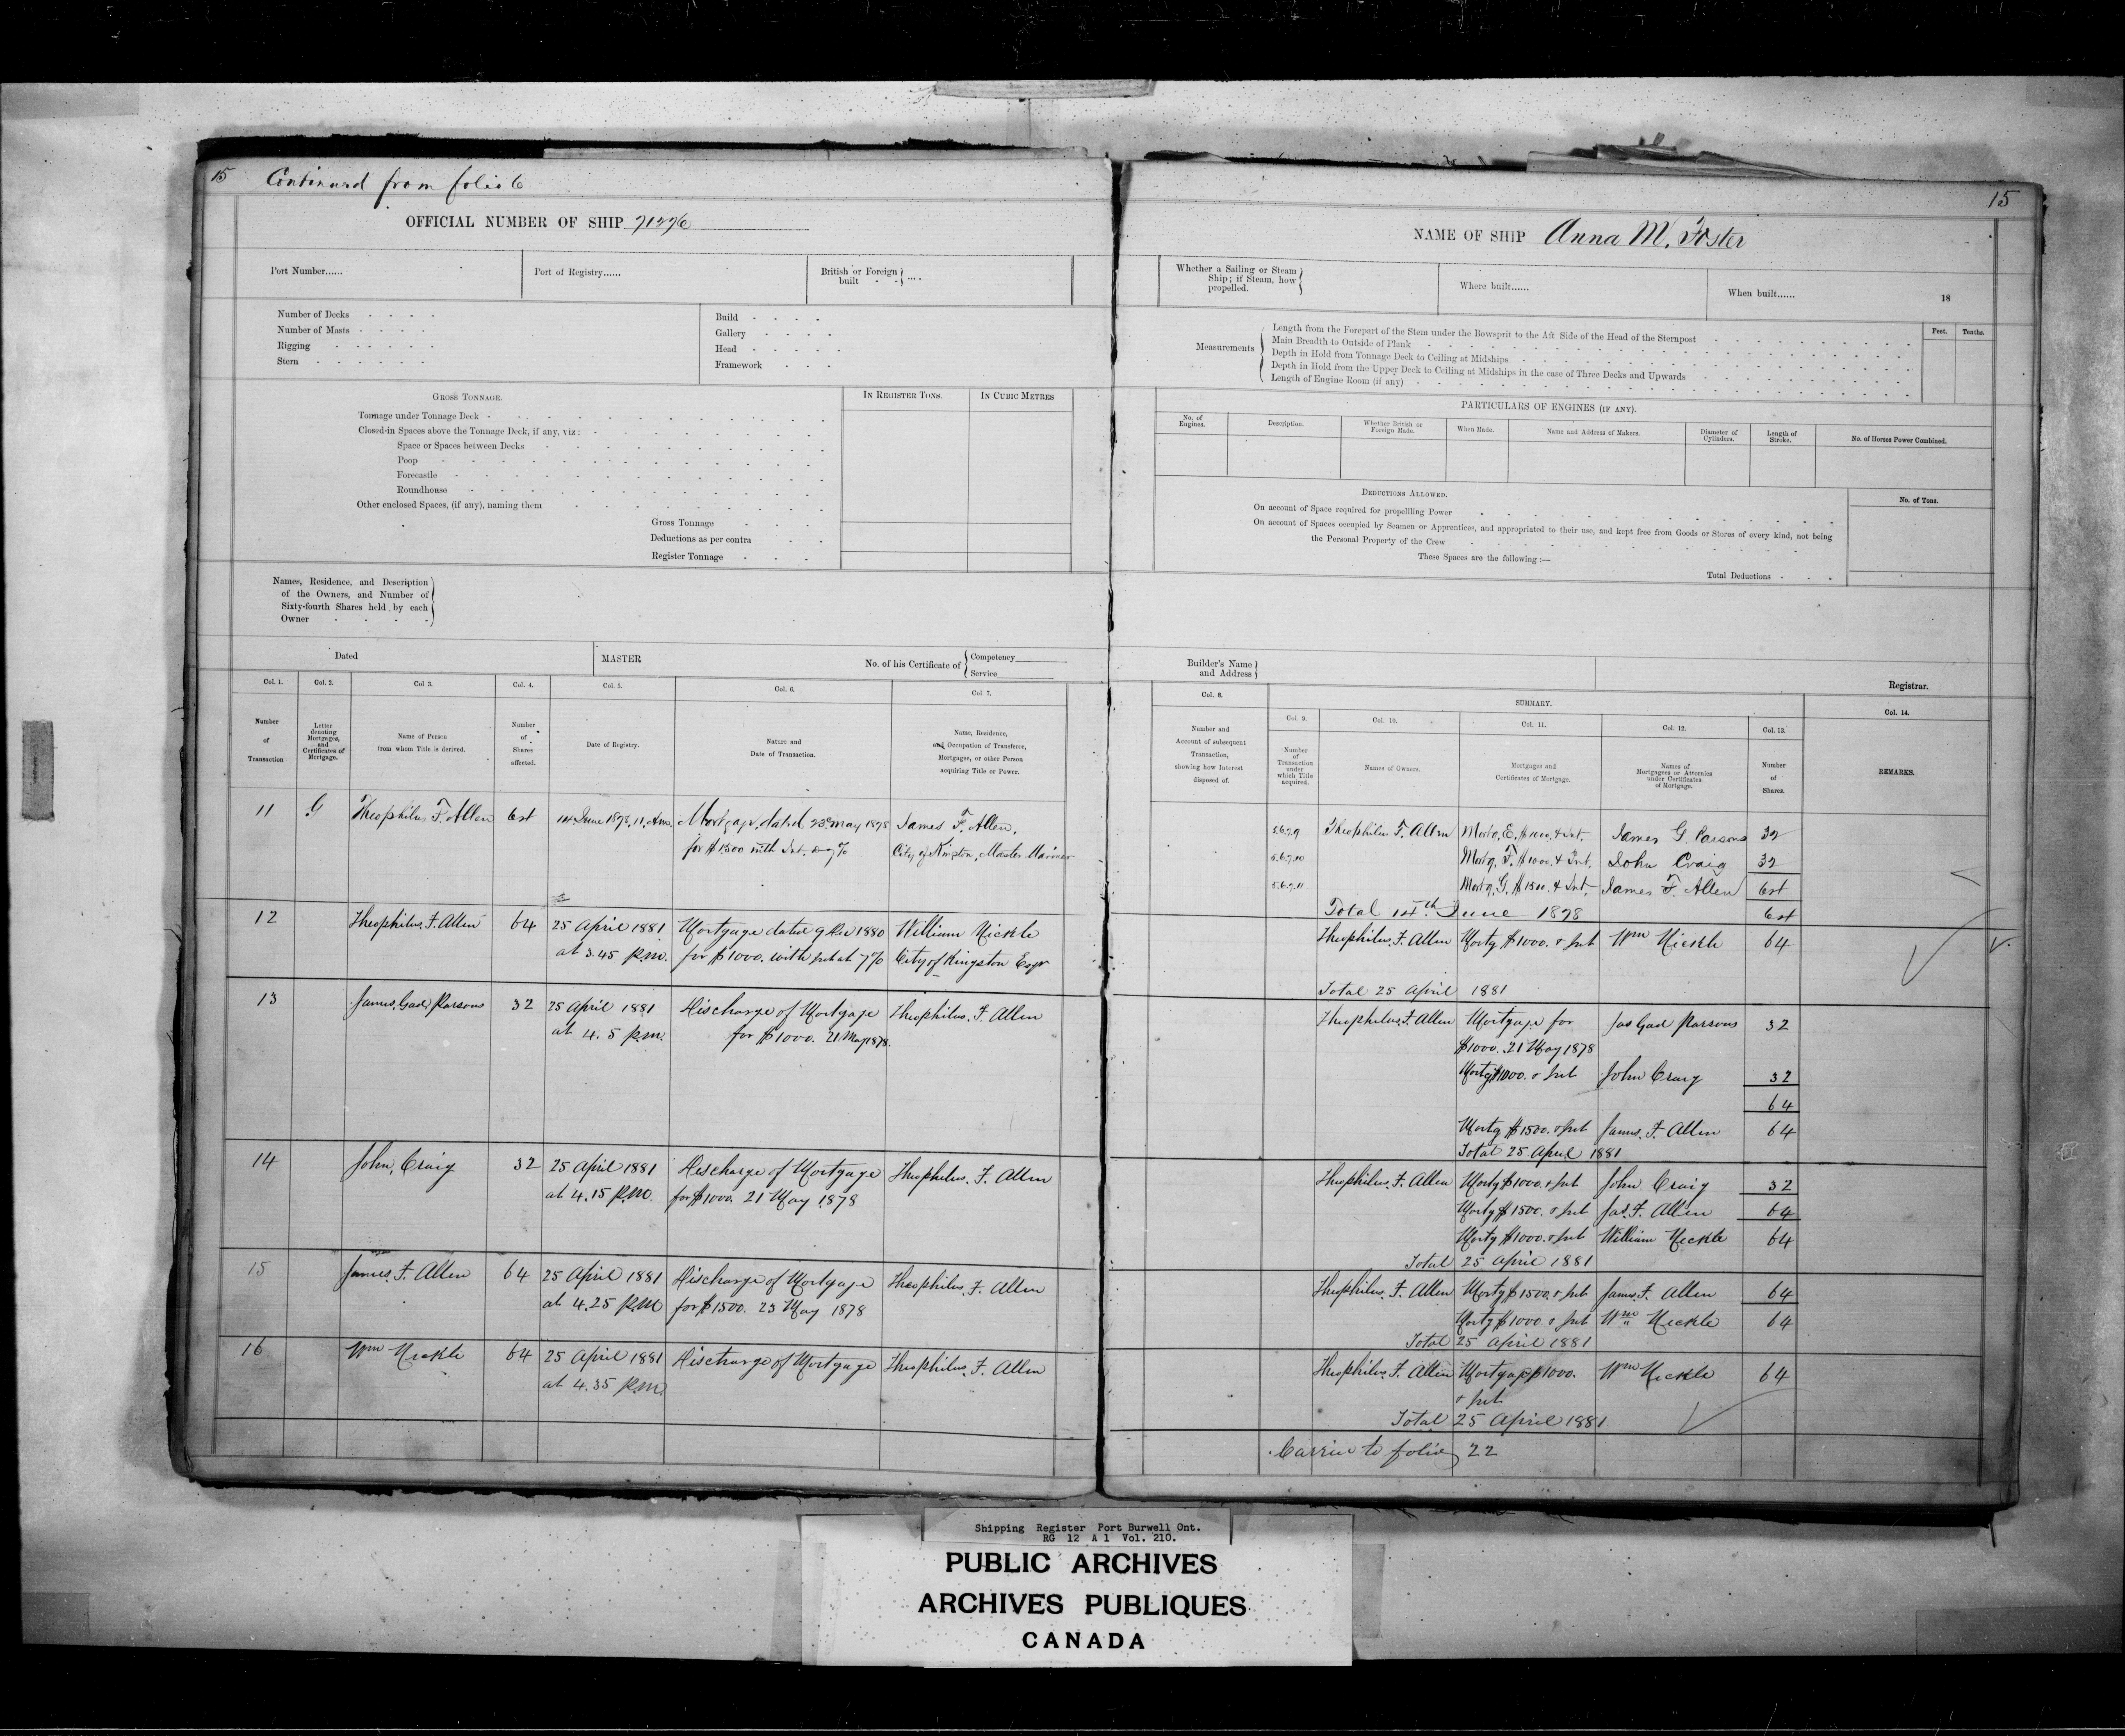 15 Continued from folio 6
OFFICIAL NUMBER OF SHIP 71276
Port Number......
Port of Registry......
British or Foreign built - - ....
Number of Decks - - - -
Number of Masts - - - -
Rigging - - - - - -
Stern - - - - - -
Build - - - -
Gallery - - - -
Head - - - - -
Framework - - -
GROSS TONNAGE.
IN REGISTER TONS.
IN CUBIC METRES
Tonnage under Tonnage Deck -
Closed-in Spaces above the Tonnage Deck, if any, viz:
Space or Spaces between Decks
Poop
Forecastle
Roundhouse
Other enclosed Spaces, (if any), naming them
Gross Tonnage
Deductions as per contra
Register Tonnage
Names, Residence, and Description
of the Owners, and Number of
Sixty-fourth Shares held by each
Owner - - - -
Dated
MASTER
No. of his Certificate of Competency
Service
Col. 1.
Col. 2.
Col 3.
Col. 4.
Col. 5.
Col. 6.
Col 7.
Number
of
Transaction
Letter
denoting
Mortgages,
and
Certificates of
Mortgage.
Name of Person
from whom Title is derived.
Number
of
Shares
affected.
Date of Registry.
Nature and
Date of Transaction.
Name, Residence,
and Occupation of Transferee,
Mortgagee, or other Person
acquiring Title or Power.
11 G Theophilus F. Allen 64 14 June 1878, 11. Am. Mortgage, dated 23d May 1878 James F. Allen,
for $1500 with Int. @ 7% City of Kingston, Master Mariner
12 Theophilus. F. Allen 64 25 April 1881 Mortgage dated 9 Dec 1880 William Nickle
at 3.45 P.M. for $1000. with Int at 7% City of Kingston Esqr
13 James. Gad Parsons 32 25 April 1881 Discharge of Mortgage Theophilus. F. Allen
at 4. 5 P.M. for $1000. 21 May 1878.
14 John, Craig 32 25 April 1881 Discharge of Mortgage Theophilus. F. Allen
at 4.15 P.M. for $1000. 21 May 1878
15 James. F. Allen 64 25 April 1881 Discharge of Mortgage Theophilus. F. Allen
at 4.25 P.M for $1500. 23 May 1878
16 Wm Nickle 64 25 April 1881 Discharge of Mortgage Theophilus. F. Allen
at 4.35 P.M.
15
NAME OF SHIP Anna M. Foster
Whether a Sailing or Steam
Ship; if Steam, how
propelled.
Where built......
When built......
18
Measurements
Length from the Forepart of the Stem under the Bowsprit to the Aft Side of the Head of the Sternpost
Main Breadth to Outside of Plank
Depth in Hold from Tonnage Deck to Ceiling at Midships
Depth in Hold from the Upper Deck to Ceiling at Midships in the case of Three Decks and Upwards
Length of Engine Room (if any)
Feet.
Tenths.
PARTICULARS OF ENGINES (IF ANY).
No. of
Engines.
Description.
Whether British or
Foreign Made.
When Made.
Name and Address of Makers.
Diameter of
Cylinders.
Length of
Stroke.
No. of Horses Power Combined.
DEDUCTIONS ALLOWED.
No. of Tons.
On account of Space required for propellling Power
On account of Spaces occupied by Seamen or Apprentices, and appropriated to their use, and kept free from Goods or Stores of every kind, not being
the Personal Property of the Crew
These Spaces are the following :—
Total Deductions
Builder's Name
and Address
Registrar.
Col. 8.
SUMMARY.
Col. 14.
Col. 9.
Col. 10.
Col. 11.
Col. 12.
Col. 13.
Number and
Account of subsequent
Transaction,
showing how Interest
disposed of.
Number
of
Transaction
under
which Title
acquired.
Names of Owners.
Mortgages and
Certificates of Mortgage.
Names of
Mortgagees or Attornies
under Certificates
of Mortgage.
Number
of
Shares.
REMARKS.
5.6.7.9 Theophilus F. Allen Mortg, E, $1000. & Int, James G. Parsons 32
5.6.7.10 Mortg, F. $1000. & Int, John Craig 32
5.6.7.11 Mortg, G. $1500. & Int, James F. Allen 64
Total 14th June 1878 64
Theophilus. F. Allen Mortg $1000. & Int Wm Nickle 64
Total 25 April 1881
Theophilus. F. Allen Mortgage for Jas Gad Parsons 32
$1000. 21 May 1878
Mortg $1000. & Int John Craig 32
64
Mortg $1500. & Int James. F. Allen 64
Total 25 April 1881
Theophilus. F. Allen Mortg $1000. & Int John Craig 32
Mortg $1500. & Int Jas. F. Allen 64
Mortg $1000. & Int William Nickle 64
Total 25 April 1881
Theophilus. F. Allen Mortg $1500. & Int James. F. Allen 64
Mortg $1000. & Int Wm Nickle 64
Total 25 April 1881
Theophilus. F. Allen Mortgage $1000. Wm Nickle 64
& Int
Total 25 April 1881
Carried to folio 22
Shipping Register Port Burwell Ont.
RG 12 A 1 Vol. 210.
PUBLIC ARCHIVES
ARCHIVES PUBLIQUES
CANADA